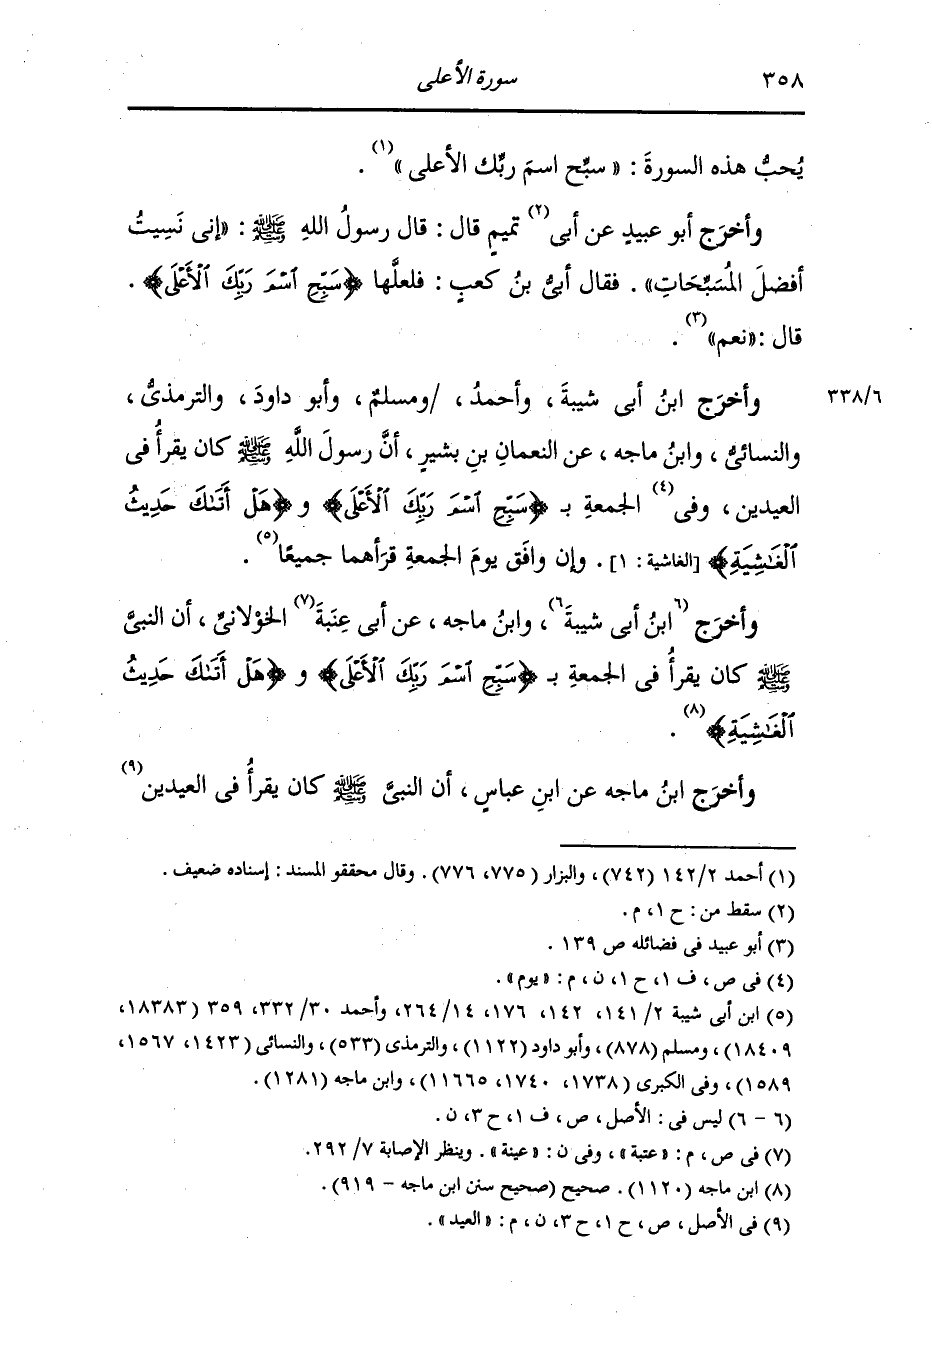 ٣٥٨ سورة الأعلى
يُحبُّ هذه السورةَ : « سبِّح اسمَ ربِّك الأعلى »(١) .
وأخرَج أبو عبيدٍ عن أبى(٢) تميمٍ قال : قال رسولُ اللهِ ﷺ : «إنى نَسِيتُ
أفضلَ المُسَبِّحَاتِ» . فقال أبىُّ بنُ كعبٍ : فلعلَّها ﴿سَبِّحِ ٱسْمَ رَبِّكَ ٱلْأَعْلَى﴾ .
قال : «نعم»(٣) .
وأخرَج ابنُ أبى شيبةَ ، وأحمدُ ، /ومسلمٌ ، وأبو داودَ ، والترمذىُّ ، ٣٣٨/٦
والنسائىُّ ، وابنُ ماجه ، عن النعمانِ بنِ بشيرٍ ، أنَّ رسولَ اللَّهِ ﷺ كان يقرأُ فى
العيدين ، وفى(٤) الجمعةِ بـ ﴿سَبِّحِ ٱسْمَ رَبِّكَ ٱلْأَعْلَى﴾ و ﴿هَلْ أَتَىٰكَ حَدِيثُ
ٱلْغَٰشِيَةِ﴾ [الغاشية : ١] . وإن وافَق يومَ الجمعةِ قرَأهما جميعًا(٥) .
وأخرَج (٦)ابنُ أبى شيبةَ(٦) ، وابنُ ماجه ، عن أبى عِنَبَةَ(٧) الخوْلانىِّ ، أن النبىَّ
ﷺ كان يقرأُ فى الجمعةِ بـ ﴿سَبِّحِ ٱسْمَ رَبِّكَ ٱلْأَعْلَى﴾ و ﴿هَلْ أَتَىٰكَ حَدِيثُ
ٱلْغَٰشِيَةِ﴾(٨) .
وأخرَج ابنُ ماجه عن ابنِ عباسٍ ، أن النبىَّ ﷺ كان يقرأُ فى العيدين(٩)
(١) أحمد ١٤٢/٢ (٧٤٢) ، والبزار (٧٧٥، ٧٧٦) . وقال محققو المسند : إسناده ضعيف .
(٢) سقط من : ح ١، م .
(٣) أبو عبيد فى فضائله ص ١٣٩ .
(٤) فى ص ، ف ١، ح ١، ن ، م : «يوم» .
(٥) ابن أبى شيبة ٢/ ١٤١، ١٤٢، ١٧٦، ١٤/ ٢٦٤، وأحمد ٣٠/ ٣٣٢، ٣٥٩ (١٨٣٨٣،
١٨٤٠٩) ، ومسلم (٨٧٨) ، وأبو داود (١١٢٢) ، والترمذى (٥٣٣) ، والنسائى (١٤٢٣، ١٥٦٧،
١٥٨٩) ، وفى الكبرى (١٧٣٨، ١٧٤٠، ١١٦٦٥) ، وابن ماجه (١٢٨١) .
(٦ - ٦) ليس فى : الأصل ، ص ، ف ١، ح ٣، ن .
(٧) فى ص ، م : «عتبة» ، وفى ن : «عينة» . وينظر الإصابة ٧/ ٢٩٢.
(٨) ابن ماجه (١١٢٠) . صحيح (صحيح سنن ابن ماجه - ٩١٩) .
(٩) فى الأصل ، ص ، ح ١، ح ٣، ن ، م : «العيد» .